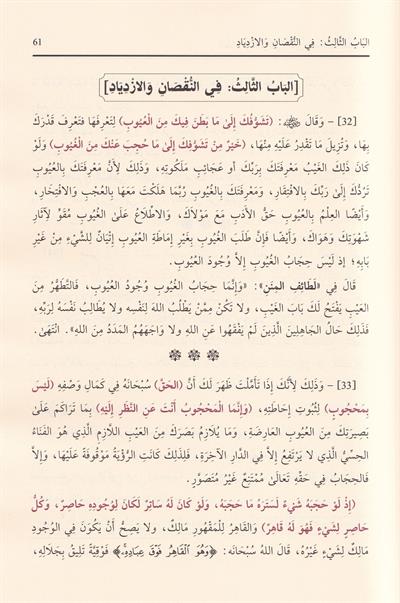 البَابُ الثَّالِثُ: فِي النُّقْصَانِ وَالازْدِيَادِ
61
[البَابُ الثَّالِثُ: فِي النُّقْصَانِ وَالازْدِيَادِ]
[32] – وَقَالَ ﷺ: (تَشَوُّفُكَ إِلَىٰ مَا بَطَنَ فِيكَ مِنَ الْعُيُوبِ) لِتَعْرِفَهَا فَتَعْرِفَ قَدْرَكَ
بِهَا، وَتُزِيلَ مَا تَقْدِرُ عَلَيْهِ مِنْهَا، (خَيْرٌ مِنْ تَشَوُّفِكَ إِلَىٰ مَا حُجِبَ عَنْكَ مِنَ الْغُيُوبِ) وَلَوْ
كَانَ ذَلِكَ الغَيْبُ مَعْرِفَتَكَ بِرَبِّكَ أو عَجَائِبِ مَلَكُوتِهِ، وَذَلِكَ لِأَنَّ مَعْرِفَتَكَ بِالعُيُوبِ
تَرُدُّكَ إِلَىٰ رَبِّكَ بِالافْتِقَارِ، وَمَعْرِفَتَكَ بِالغُيُوبِ رُبَّمَا هَلَكْتَ مَعَهَا بِالعُجْبِ وَالافْتِخَارِ،
وَأَيْضًا العِلْمُ بِالعُيُوبِ حَقُّ الأَدَبِ مَعَ مَوْلَاكَ، وَالاطِّلَاعُ عَلَىٰ الغُيُوبِ مُقَوٍّ لِآثَارِ
شَهْوَتِكَ وَهَوَاكَ، وَأَيْضًا فَإِنَّ طَلَبَ الغُيُوبِ بِغَيْرِ إِمَاطَةِ العُيُوبِ إِتْيَانٌ لِلشَّيْءِ مِنْ غَيْرِ
بَابِهِ؛ إِذْ لَيْسَ حِجَابُ الغُيُوبِ إلاَّ وُجُودَ العُيُوبِ.
قَالَ فِي «لَطَائِفِ المِنَنِ»: «وَإِنَّمَا حِجَابُ الغُيُوبِ وُجُودُ العُيُوبِ، فَالتَّطَهُّرُ مِنَ
العَيْبِ يَفْتَحُ لَكَ بَابَ الغَيْبِ، ولا تَكُنْ مِمَّنْ يَطْلُبُ اللهَ لِنَفْسِهِ ولا يُطَالِبُ نَفْسَهُ لِرَبِّهِ،
فَذَلِكَ حَالُ الجَاهِلِينَ الَّذِينَ لَمْ يَفْقَهُوا عَنِ اللهِ ولا وَاجَهَهُمُ المَدَدُ مِنَ اللهِ». انْتَهَىٰ.
[33] – وَذَلِكَ لِأَنَّكَ إِذَا تَأَمَّلْتَ ظَهَرَ لَكَ أَنَّ (الحَقَّ) سُبْحَانَهُ فِي كَمَالِ وَصْفِهِ (لَيْسَ
بِمَحْجُوبٍ) لِثُبُوتِ إِحَاطَتِهِ، (وَإِنَّمَا المَحْجُوبُ أَنْتَ عَنِ النَّظَرِ إِلَيْهِ) بِمَا تَرَاكَمَ عَلَىٰ
بَصِيرَتِكَ مِنَ العُيُوبِ العَارِضَةِ، وَمَا يُلَازِمُ بَصَرَكَ مِنَ العَيْبِ اللَّازِمِ الَّذِي هُوَ الفَنَاءُ
الحِسِّيُّ الَّذِي لا يَرْتَفِعُ إلاَّ فِي الدَّارِ الآخِرَةِ، فَلِذَلِكَ كَانَتِ الرُّؤْيَةُ مَوْقُوفَةً عَلَيْهَا، وَإلاَّ
فَالحِجَابُ فِي حَقِّهِ تَعَالَىٰ مُمْتَنِعٌ غَيْرُ مُتَصَوَّرٍ.
(إِذْ لَوْ حَجَبَهُ شَيْءٌ لَسَتَرَهُ مَا حَجَبَهُ، وَلَوْ كَانَ لَهُ سَاتِرٌ لَكَانَ لِوُجُودِهِ حَاصِرٌ، وَكُلُّ
حَاصِرٍ لِشَيْءٍ فَهُوَ لَهُ قَاهِرٌ) وَالقَاهِرُ لِلْمَقْهُورِ مَالِكٌ، ولا يَصِحُّ أَنْ يَكُونَ فِي الوُجُودِ
مَالِكٌ لِشَيْءٍ غَيْرُهُ، قَالَ اللهُ سُبْحَانَهُ: ﴿وَهُوَ الْقَاهِرُ فَوْقَ عِبَادِهِ﴾ فَوْقِيَّةً تَلِيقُ بِجَلَالِهِ،